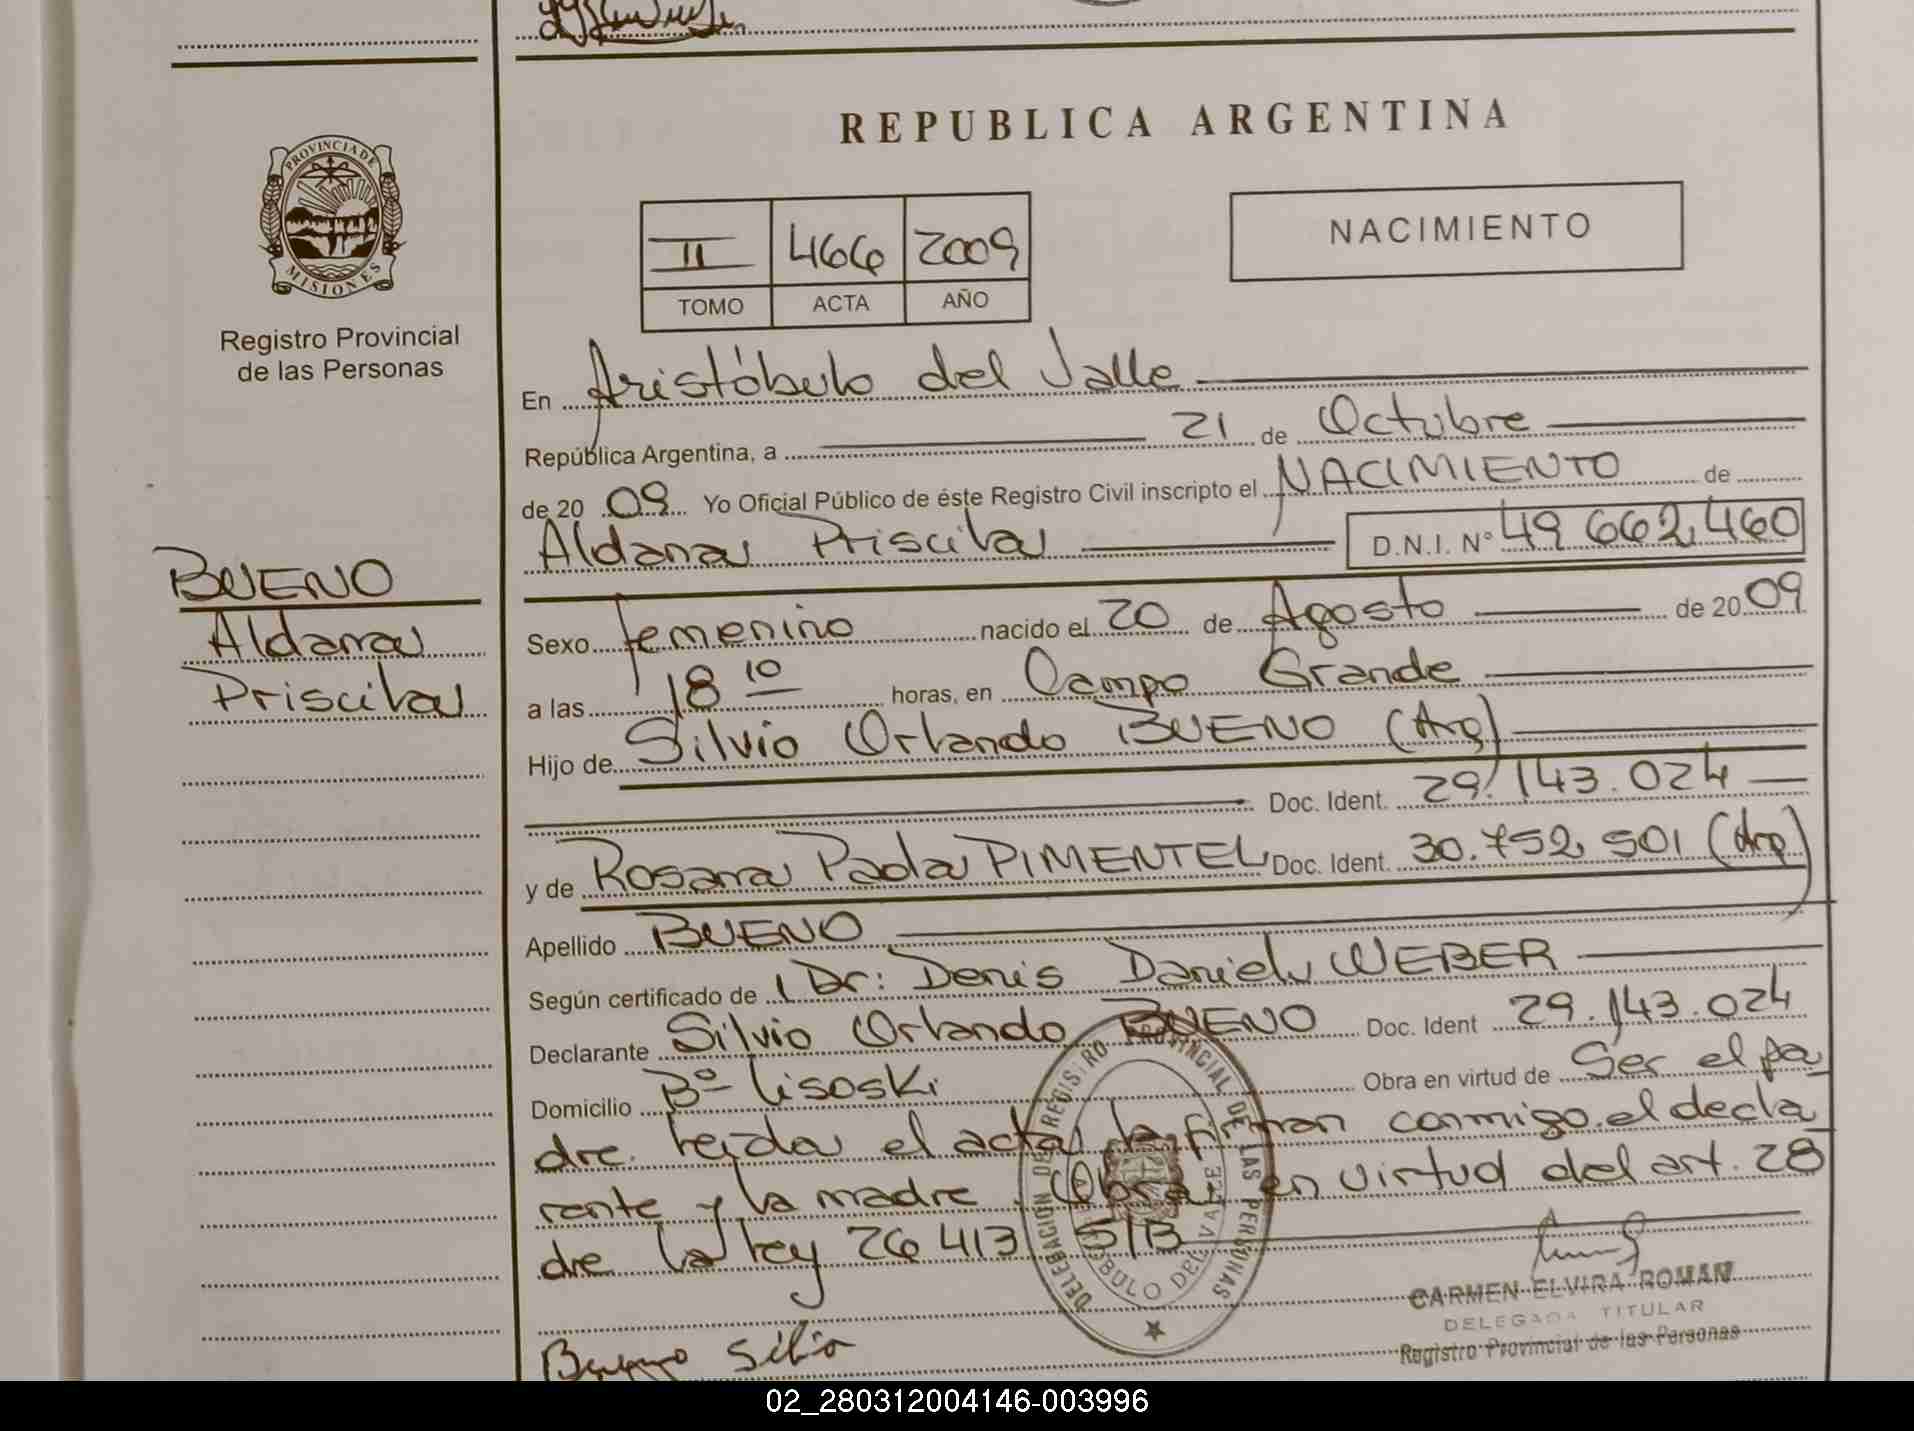 REPUBLICA ARGENTINA
PROVINCIA DE
MISIONES
Registro Provincial
de las Personas
II 466 2009
TOMO ACTA AÑO
NACIMIENTO
En Aristóbulo del Valle
República Argentina, a 21 de Octubre
de 2009 Yo Oficial Público de éste Registro Civil inscripto el NACIMIENTO de
Aldana Priscila D.N.I. Nº 49 662,460
BUENO
Aldana
Priscila
Sexo Femenino nacido el 20 de Agosto de 2009
a las 18 10 horas, en Campo Grande
Hijo de Silvio Orlando BUENO (Arg)
Doc. Ident. 29.143.024
y de Rosana Paola PIMENTEL Doc. Ident. 30.752,501 (Arg)
Apellido BUENO
Según certificado de Dr: Denis Daniel WEBER
Declarante Silvio Orlando BUENO Doc. Ident 29.143.024
Domicilio Bº Lisoski Obra en virtud de Ser el pa
dre. Leída el acta la firman conmigo el decla
rante y la madre. Obra en virtud del art. 28
de la Ley 26 413 S/B
DELEGACION DE REGISTRO PROVINCIAL DE LAS PERSONAS
ARISTOBULO DEL VALLE
CARMEN ELVIRA ROMAN
DELEGADA TITULAR
Registro Provincial de las Personas
Bueno Silvio
02_280312004146-003996